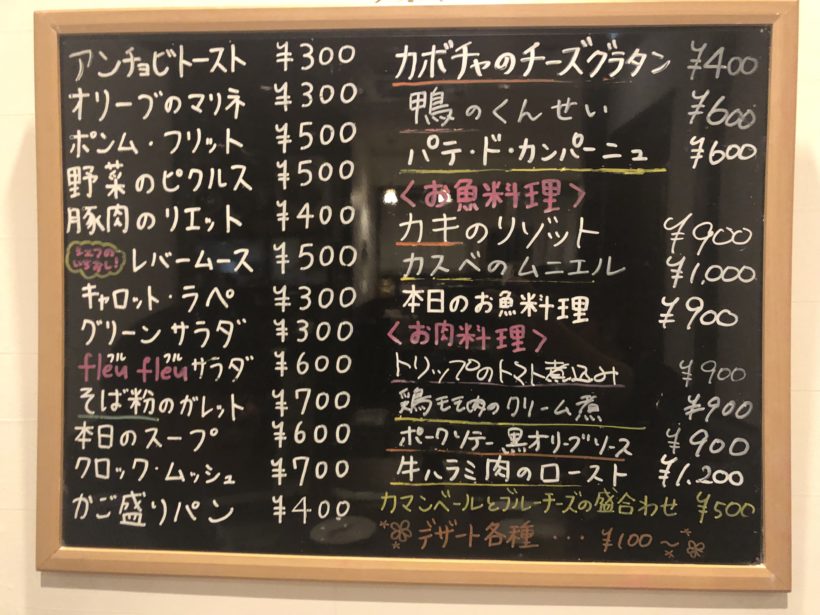 アンチョビトースト ¥300
オリーブのマリネ ¥300
ポンム・フリット ¥500
野菜のピクルス ¥500
豚肉のリエット ¥400
シェフのいちおし! レバームース ¥500
キャロット・ラペ ¥300
グリーンサラダ ¥300
fleu fleuサラダ ¥600
フル フル
そば粉のガレット ¥700
本日のスープ ¥600
クロック・ムッシュ ¥700
かご盛りパン ¥400
カボチャのチーズグラタン ¥400
鴨のくんせい ¥600
パテ・ド・カンパーニュ ¥600
<お魚料理>
カキのリゾット ¥900
カスベのムニエル ¥1,000
本日のお魚料理 ¥900
<お肉料理>
トリップのトマト煮込み ¥900
鶏モモ肉のクリーム煮 ¥900
ポークソテー 黒オリーブソース ¥900
牛ハラミ肉のロースト ¥1,200
カマンベールとブルーチーズの盛合わせ ¥500
デザート各種 ... ¥100~